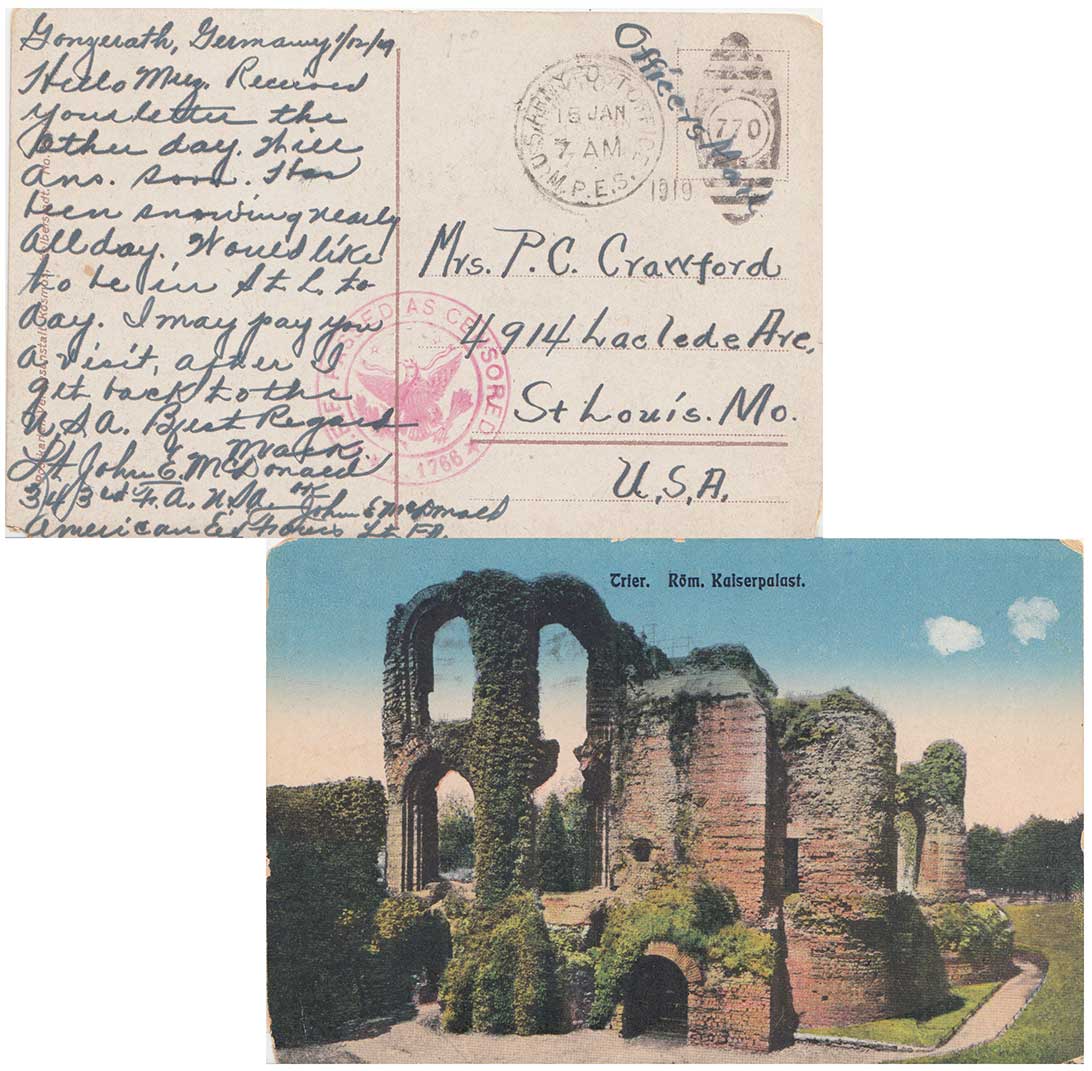 Gonzerath, Germany 1/12/19
Hello Muz. Received
your letter the
other day. Will
ans. soon. Has
been snowing nearly
all day. Would like
to be in St L. to
day. I may pay you
a visit, after I
get back to the
U.S.A. Best Regards
Mack.
Lt John E. McDonald
343rd F.A. U.S.A.
John E McDonald
American Ex Forces Lt FA.
1⁰⁰
U.S. ARMY POST OFFICE
15 JAN
7 AM
M.P.E.S.
1919
770
Officers Mail
Mrs. P.C. Crawford
4914 Laclede Ave.
St Louis. Mo.
U.S.A.
PASSED AS CENSORED
1766
Trier. Röm. Kaiserpalast.